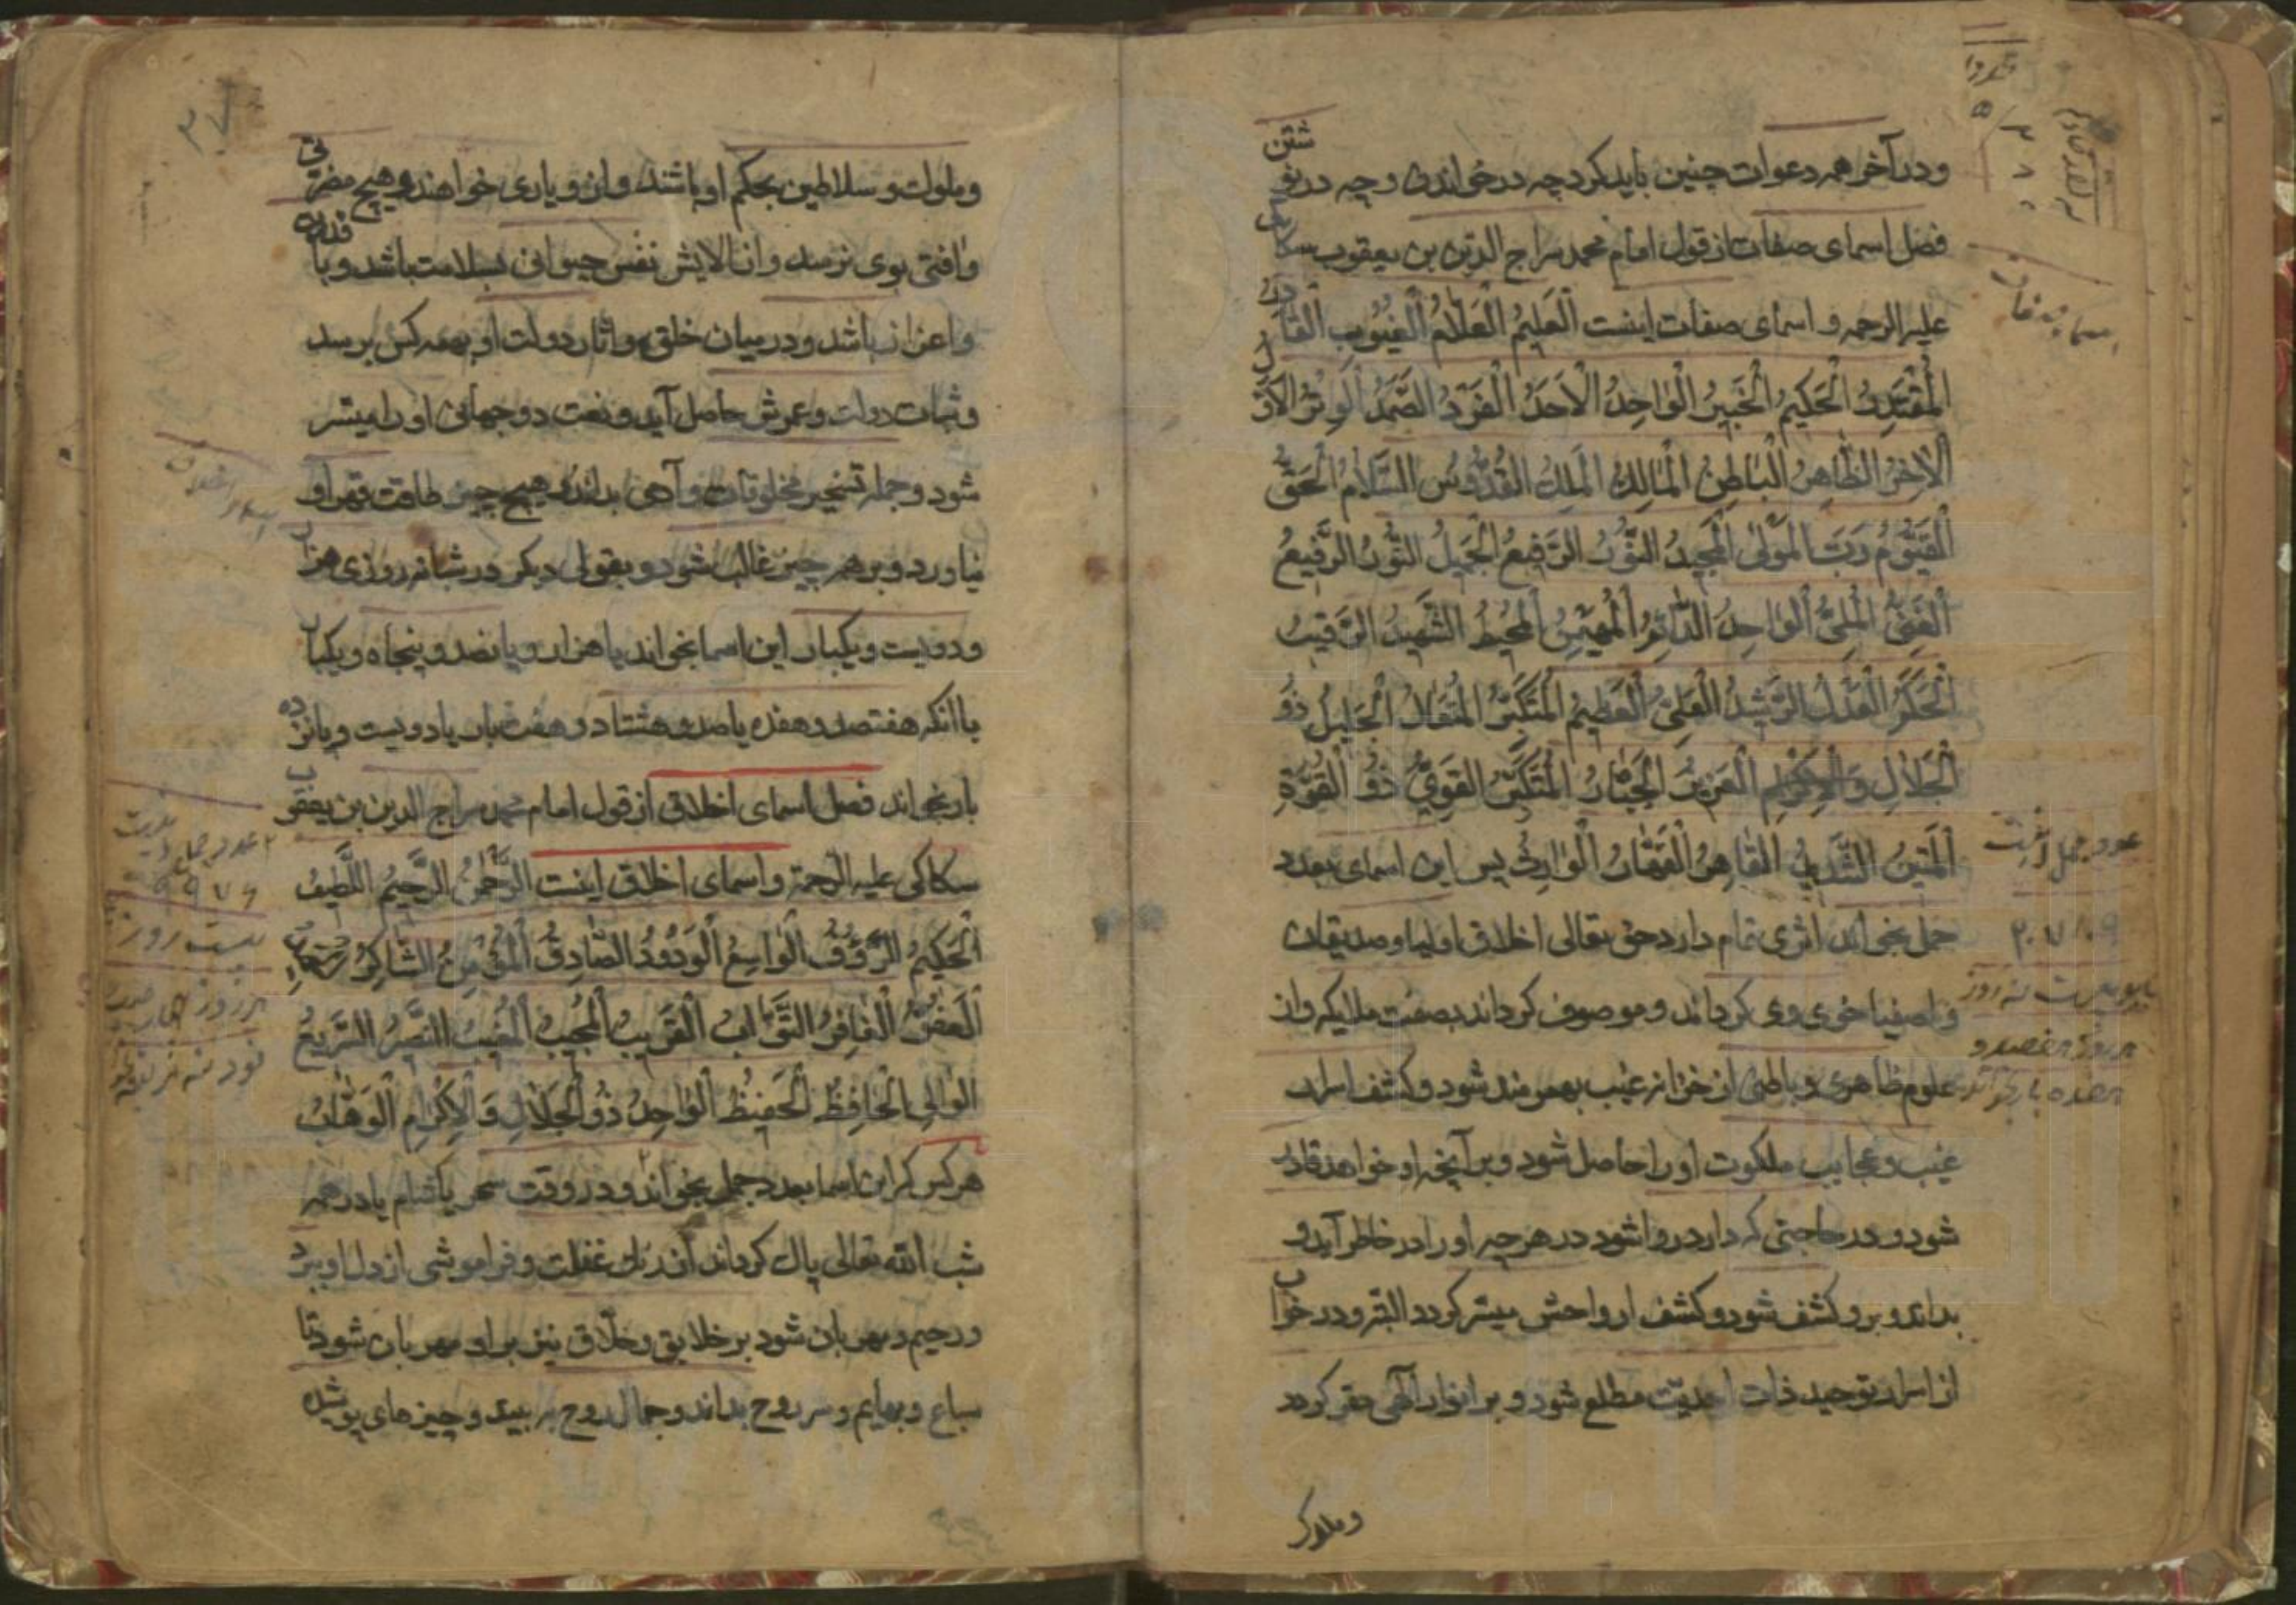 ودر آخر همه دعوات چنین باید کرد چه در خواندن و چه در نوشتن
فصل اسمای صفات از قول امام محمد سراج الدین بن یعقوب سکاکی
علیه الرحمه و اسمای صفات اینست اَلْعَلیمُ الْعَلّامُ الْغُیُوبِ الْقادِرُ
الْمُقْتَدِرُ الْحَکیمُ الْخَبیرُ الْواحِدُ الْاَحَدُ الْفَرْدُ الصَّمَدُ الْوِتْرُ الْاَوَّلُ
الْآخِرُ الظّاهِرُ الْباطِنُ الْمالِكُ الْمَلِكُ الْقُدُّوسُ السَّلامُ الْحَقُّ
الْقَیُّومُ رَبَّ الْمَوْلیٰ الْمَجیدُ النُّورُ الرَّفیعُ الْجَمیلُ النُّورُ الرَّفیعُ
الْغَنِیُّ الْمَلِیُّ الْواجِدُ الدّائِمُ الْمُهَیْمِنُ الْمُحیطُ الشَّهیدُ الرَّقیبُ
الْحَکَمُ الْعَدْلُ الرَّشیدُ الْعَلِیُّ الْعَظیمُ الْمُتَکَبِّرُ الْمُتَعالُ الْجَلیلُ ذُو
الْجَلالِ وَالْاِکْرامِ الْعَزیزُ الْجَبّارُ الْمُتَکَبِّرُ الْقَوِیُّ ذُو الْقُوَّةِ
الْمَتینُ الشَّدیدُ الْقاهِرُ الْقَهّارُ الْوارِثُ پس این اسمای بعدد
جمل بخواند اثری تمام دارد حق تعالی اخلاق اولیا و صدیقان
و اصفیا خوی وی کرداند و موصوف کرداند بصفت ملائیکه و از
علوم ظاهری و باطنی از خزانه غیب بهره مند شود و کشف اسرار
غیب و عجایب ملکوت او را حاصل شود و بر آنچه او خواهد قادر
شود و هر حاجتی که دارد روا شود در هر چه او را در خاطر آید و
بداند و برو کشف شود و کشف ارواحش میسّر کردد البته و در خواب
از اسرار توحید ذات احدیّت مطلع شود و بر انوار الهی مقر کردد
و ملوک
عدد جمل اینست
۲۰۷۰۹
هر روز هفتصد و
هفده بار بخواند
۳۷
و ملوک و سلاطین بحکم او باشند و از و یاری خواهند و هیچ مضرتی
و آفتی بوی نرسد و از الایش نفس حیوانی بسلامت باشد و با قدر
و اعزاز باشد و در میان خلق و اثار دولت او بهمه کس برسد
و ثبات دولت و عمرش حاصل آید و نعت دو جهانی او را میسّر
شود و جمله تسخیر مخلوقات و آدمی بداند و هیچ چیز طاقت قهر او
نیاورد و بر همه چیز غالب شود و بقولی دیکر در شبانه روزی هزار
و دویست و یکبار این اسما بخواند یا هزار و پانصد و پنجاه و یکبار
یا انکه هفتصد و هفده یا صد و هشتاد و هفت بار یا دویست و پانزده
بار بخواند فصل اسمای اخلاق از قول امام محمد سراج الدین بن یعقوب
سکاکی علیه الرحمة و اسمای اخلاق اینست الرَّحْمنُ الرَّحیمُ اللَّطیفُ
الْحَکیمُ الرَّؤُفُ الْواسِعُ الْوَدُودُ الصّادِقُ الْمُؤْمِنُ الشّاکِرُ
الْعَفُوُّ الْغافِرُ التَّوّابُ الْقَریبُ الْمُجیبُ الْمُغیثُ النَّصیرُ السَّریعُ
الْوالِی الْحافِظُ الْحَفیظُ الْواجِدُ ذُو الْجَلالِ وَالْاِکْرامِ الْوَهّابُ
هر کس کر این اسما بعدد جمل بخواند و در وقت سحر یا شام یا در همه
شب الله تعالی پاك کرداند از زنك غفلت و فراموشی از دل او ببرد
و رحیم و مهربان شود بر خلایق و خلّاق نیز بر او مهربان شود تا
سباع و بهایم و سر روح بداند و جمال روح به بیند و چیزهای پوشیده
بیست روز